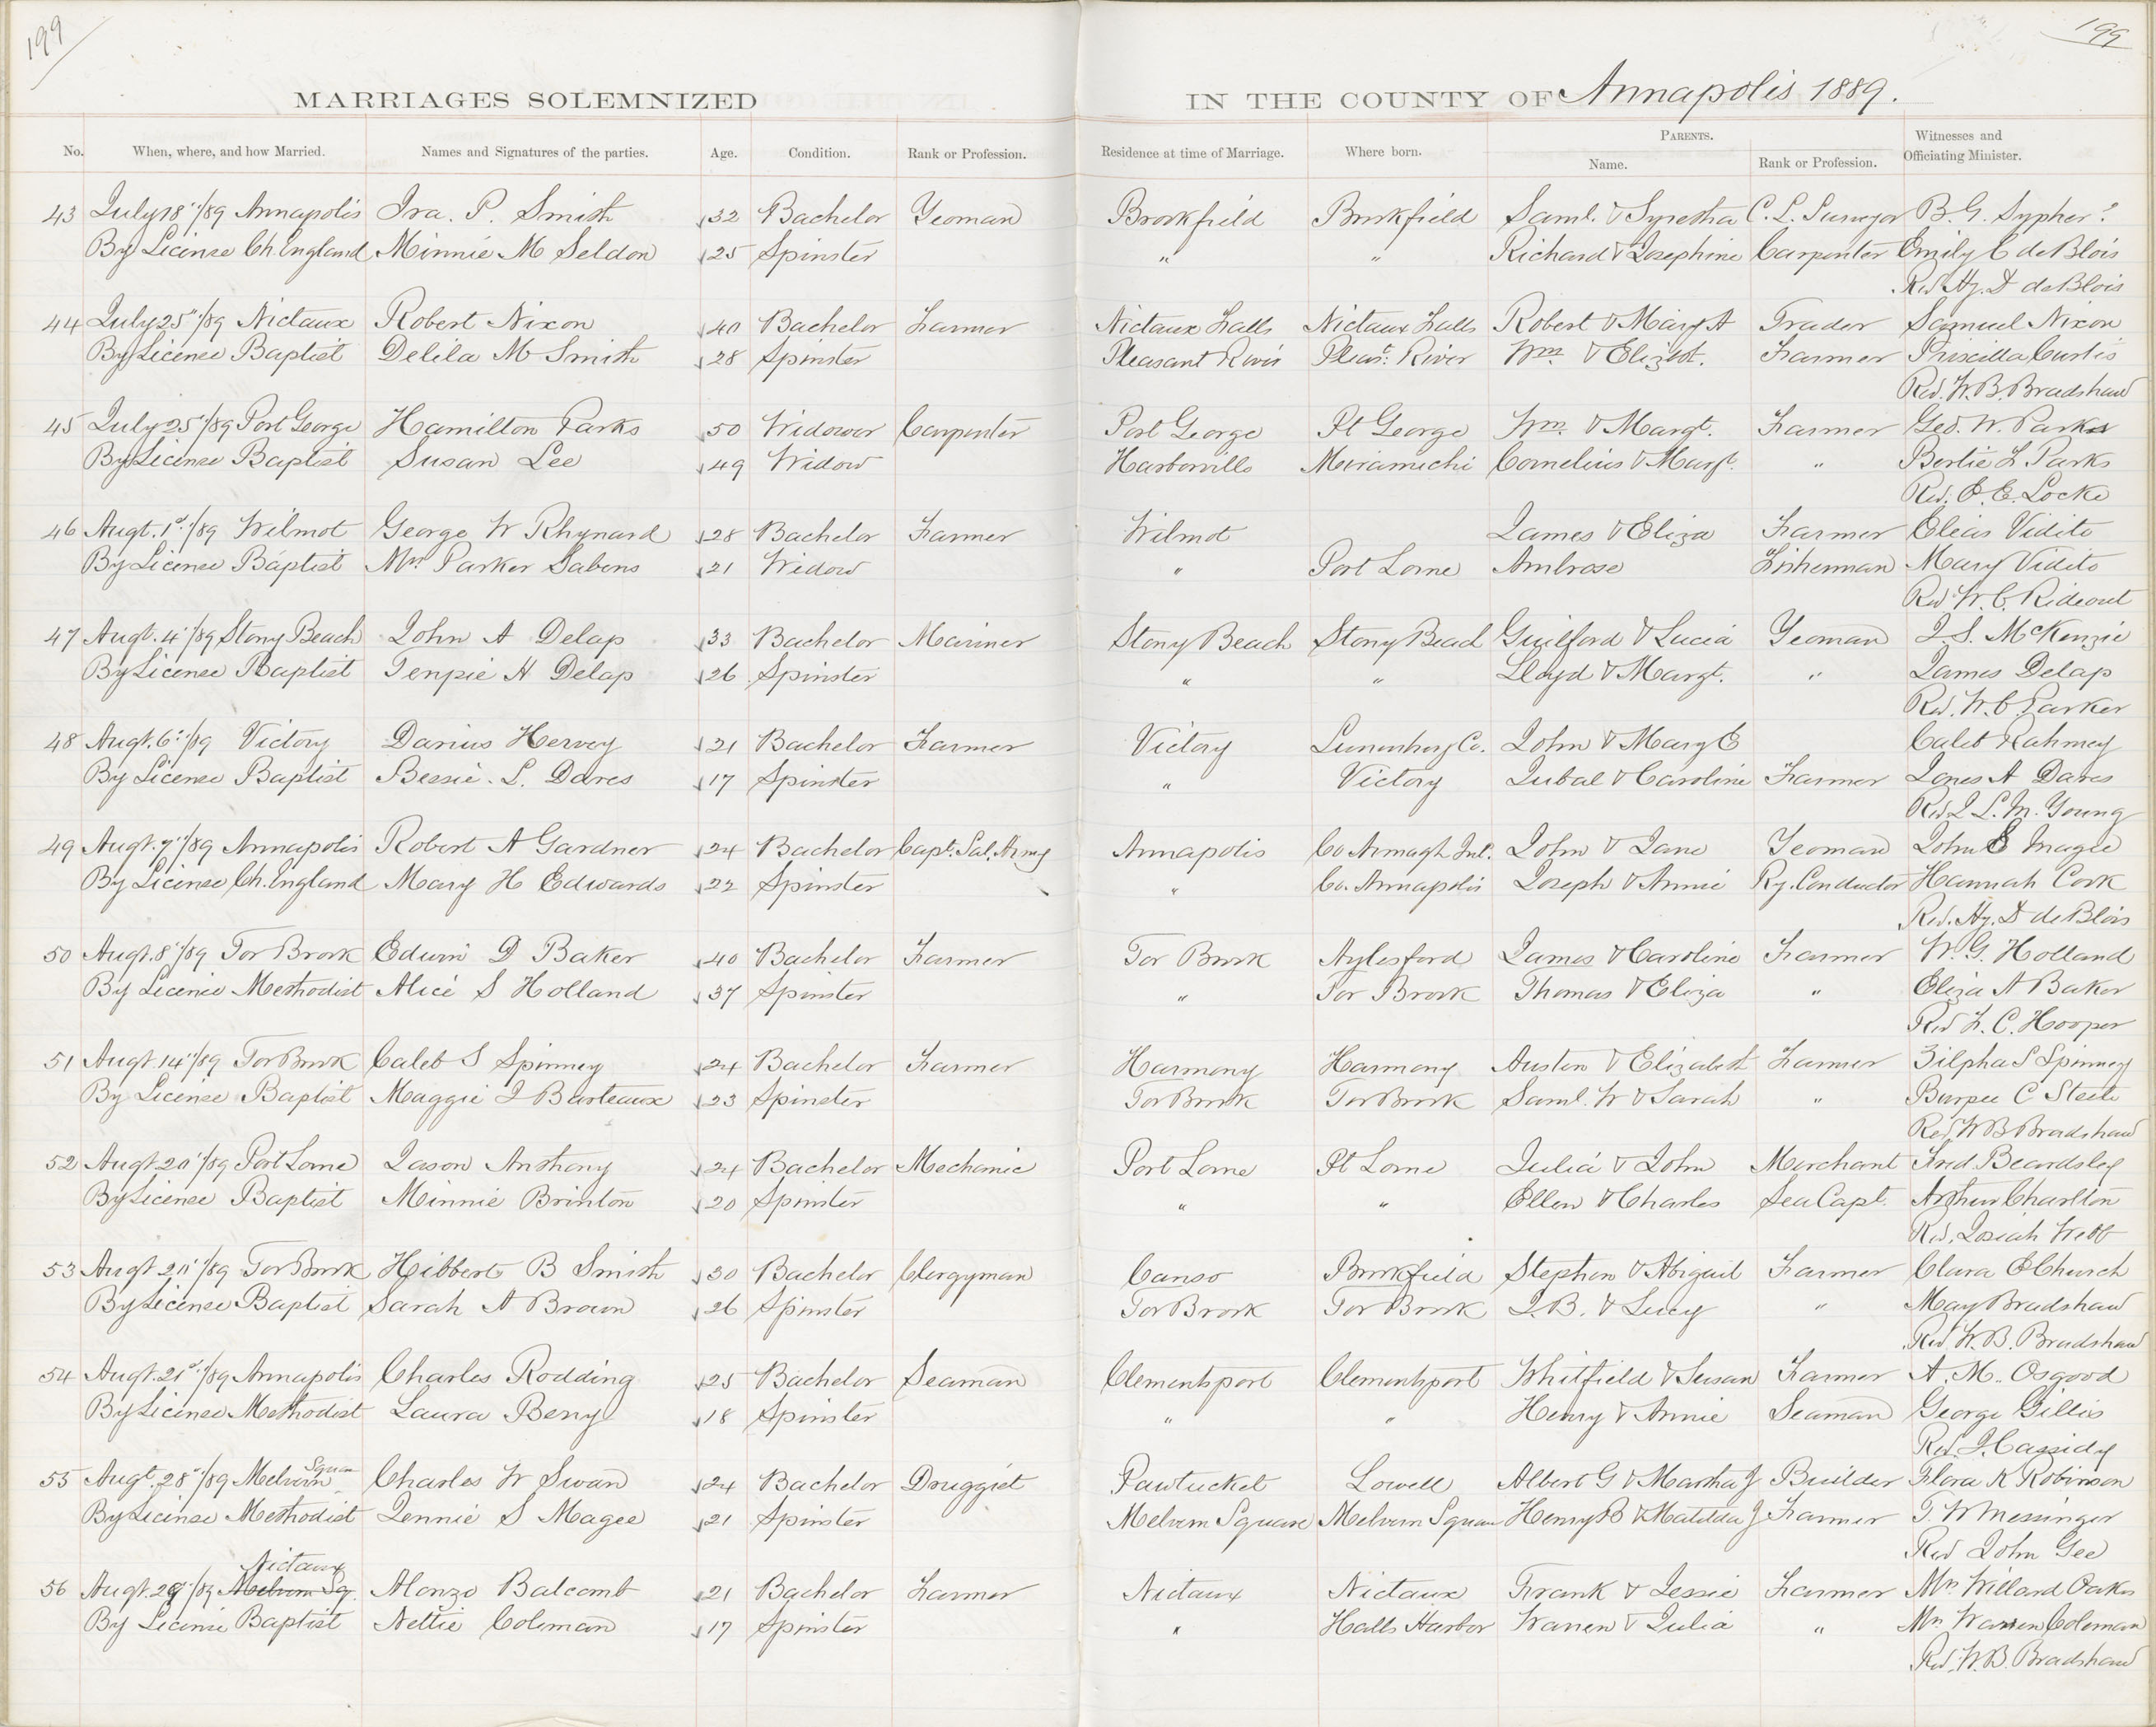 199
199
MARRIAGES SOLEMNIZED IN THE COUNTY OF Annapolis 1889.
No. When, where, and how Married. Names and Signatures of the parties. Age. Condition. Rank or Profession. Residence at time of Marriage. Where born. PARENTS. Name. Rank or Profession. Witnesses and Officiating Minister.
43 July 18"/89 Annapolis Ira. P. Smith 32 Bachelor Yeoman Brookfield Brookfield Saml. & Syretha C. L. Surveyor B. G. Sypher?
By License Ch. England Minnie M Seldon 25 Spinster " " Richard & Josephine Carpenter Emily C deBlois
Rev Hy. D deBlois
44 July 25"/89 Nictaux Robert Nixon 40 Bachelor Farmer Nictaux Falls Nictaux Falls Robert & Mary A Trader Samuel Nixon
By License Baptist Delila M Smith 28 Spinster Pleasant River Pleast. River Wm. & Elizbt. Farmer Priscilla Curtis
Rev. W. B. Bradshaw
45 July 25"/89 Port George Hamilton Parks 50 Widower Carpenter Port George Pt George Wm. & Margt. Farmer Geo. W. Parks
By License Baptist Susan Lee 49 Widow Harborville Meiramichi Cornelius & Margt. " Bertie L Parks
Rev. E. E. Locke
46 Augt. 1st/89 Wilmot George W Rhynard 28 Bachelor Farmer Wilmot James & Eliza Farmer Elias Vidito
By License Baptist Mrs Parker Sabens 21 Widow " Port Lorne Ambrose Fisherman Mary Vidito
Rev W. C. Rideout
47 Augt. 4"/89 Stony Beach John A Delap 33 Bachelor Mariner Stony Beach Stony Beach Guilford & Lucia Yeoman J. S. McKenzie
By License Baptist Tenpie H Delap 26 Spinster " " Lloyd & Margt. " James Delap
Rev. W. C. Parker
48 Augt. 6"/89 Victory Darius Hervey 21 Bachelor Farmer Victory Lunenburg Co. John & Mary E Caleb Rahmey
By License Baptist Bessie. L. Dares 17 Spinster " Victory Jubal & Caroline Farmer Jones A Dares
Rev J L. M. Young
49 Augt. 7"/89 Annapolis Robert A Gardner 24 Bachelor Capt. Sal. Army Annapolis Co Armagh Irl. John & Jane Yeoman John E Magee
By License Ch. England Mary H Edwards 22 Spinster " Co. Annapolis Joseph & Annie Ry. Conductor Hannah Cook
Rev. Hy. D deBlois
50 Augt. 8"/89 Tor Brook Edwin D Baker 40 Bachelor Farmer Tor Brook Aylesford James & Caroline Farmer W. G. Holland
By License Methodist Alice S Holland 37 Spinster " Tor Brook Thomas & Eliza " Eliza A Baker
Rev F. C. Hooper
51 Augt 14"/89 Tor Brook Caleb S Spinney 24 Bachelor Farmer Harmony Harmony Austen & Elizabeth Farmer Zilpha S Spinney
By License Baptist Maggie J Barteaux 23 Spinster Tor Brook Tor Brook Saml. W & Sarah " Burpee C Steele
Rev. W B Bradshaw
52 Augt 20"/89 Port Lorne Jason Anthony 24 Bachelor Mechanic Port Lorne Pt Lorne Julia & John Merchant Fred Beardsley
By License Baptist Minnie Brinton 20 Spinster " " Ellen & Charles Sea Capt. Arthur Charlton
Rev. Josiah Webb
53 Augt 20"/89 Tor Brook Hibbert B Smith 30 Bachelor Clergyman Canso Brookfield Stephen & Abigail Farmer Clara E Church
By License Baptist Sarah A Brown 26 Spinster Tor Brook Tor Brook J. B. & Lucy " May Bradshaw
Rev. W. B. Bradshaw
54 Augt. 21st/89 Annapolis Charles Rodding 25 Bachelor Seaman Clementsport Clementsport Whitfield & Susan Farmer A. M. Osgood
By License Methodist Laura Berry 18 Spinster " " Henry & Annie Seaman George Gillis
Rev. J. Cassidy
55 Augt. 28"/89 Melvern Square Charles W Swan 24 Bachelor Druggist Pawtucket Lowell Albert G & Martha J Builder Flora K Robinson
By License Methodist Jennie S Magee 21 Spinster Melvern Square Melvern Square Henry B & Matilda J Farmer T. W Messinger
Rev John Gee
Nictaux
56 Augt. 29"/89 Melvern Sq. Alonzo Balcomb 21 Bachelor Farmer Nictaux Nictaux Frank & Jessie Farmer Mrs Willard Oakes
By License Baptist Nettie Coleman 17 Spinster " Halls Harbor Warren & Julia " Mrs Warren Coleman
Rev. W. B. Bradshaw